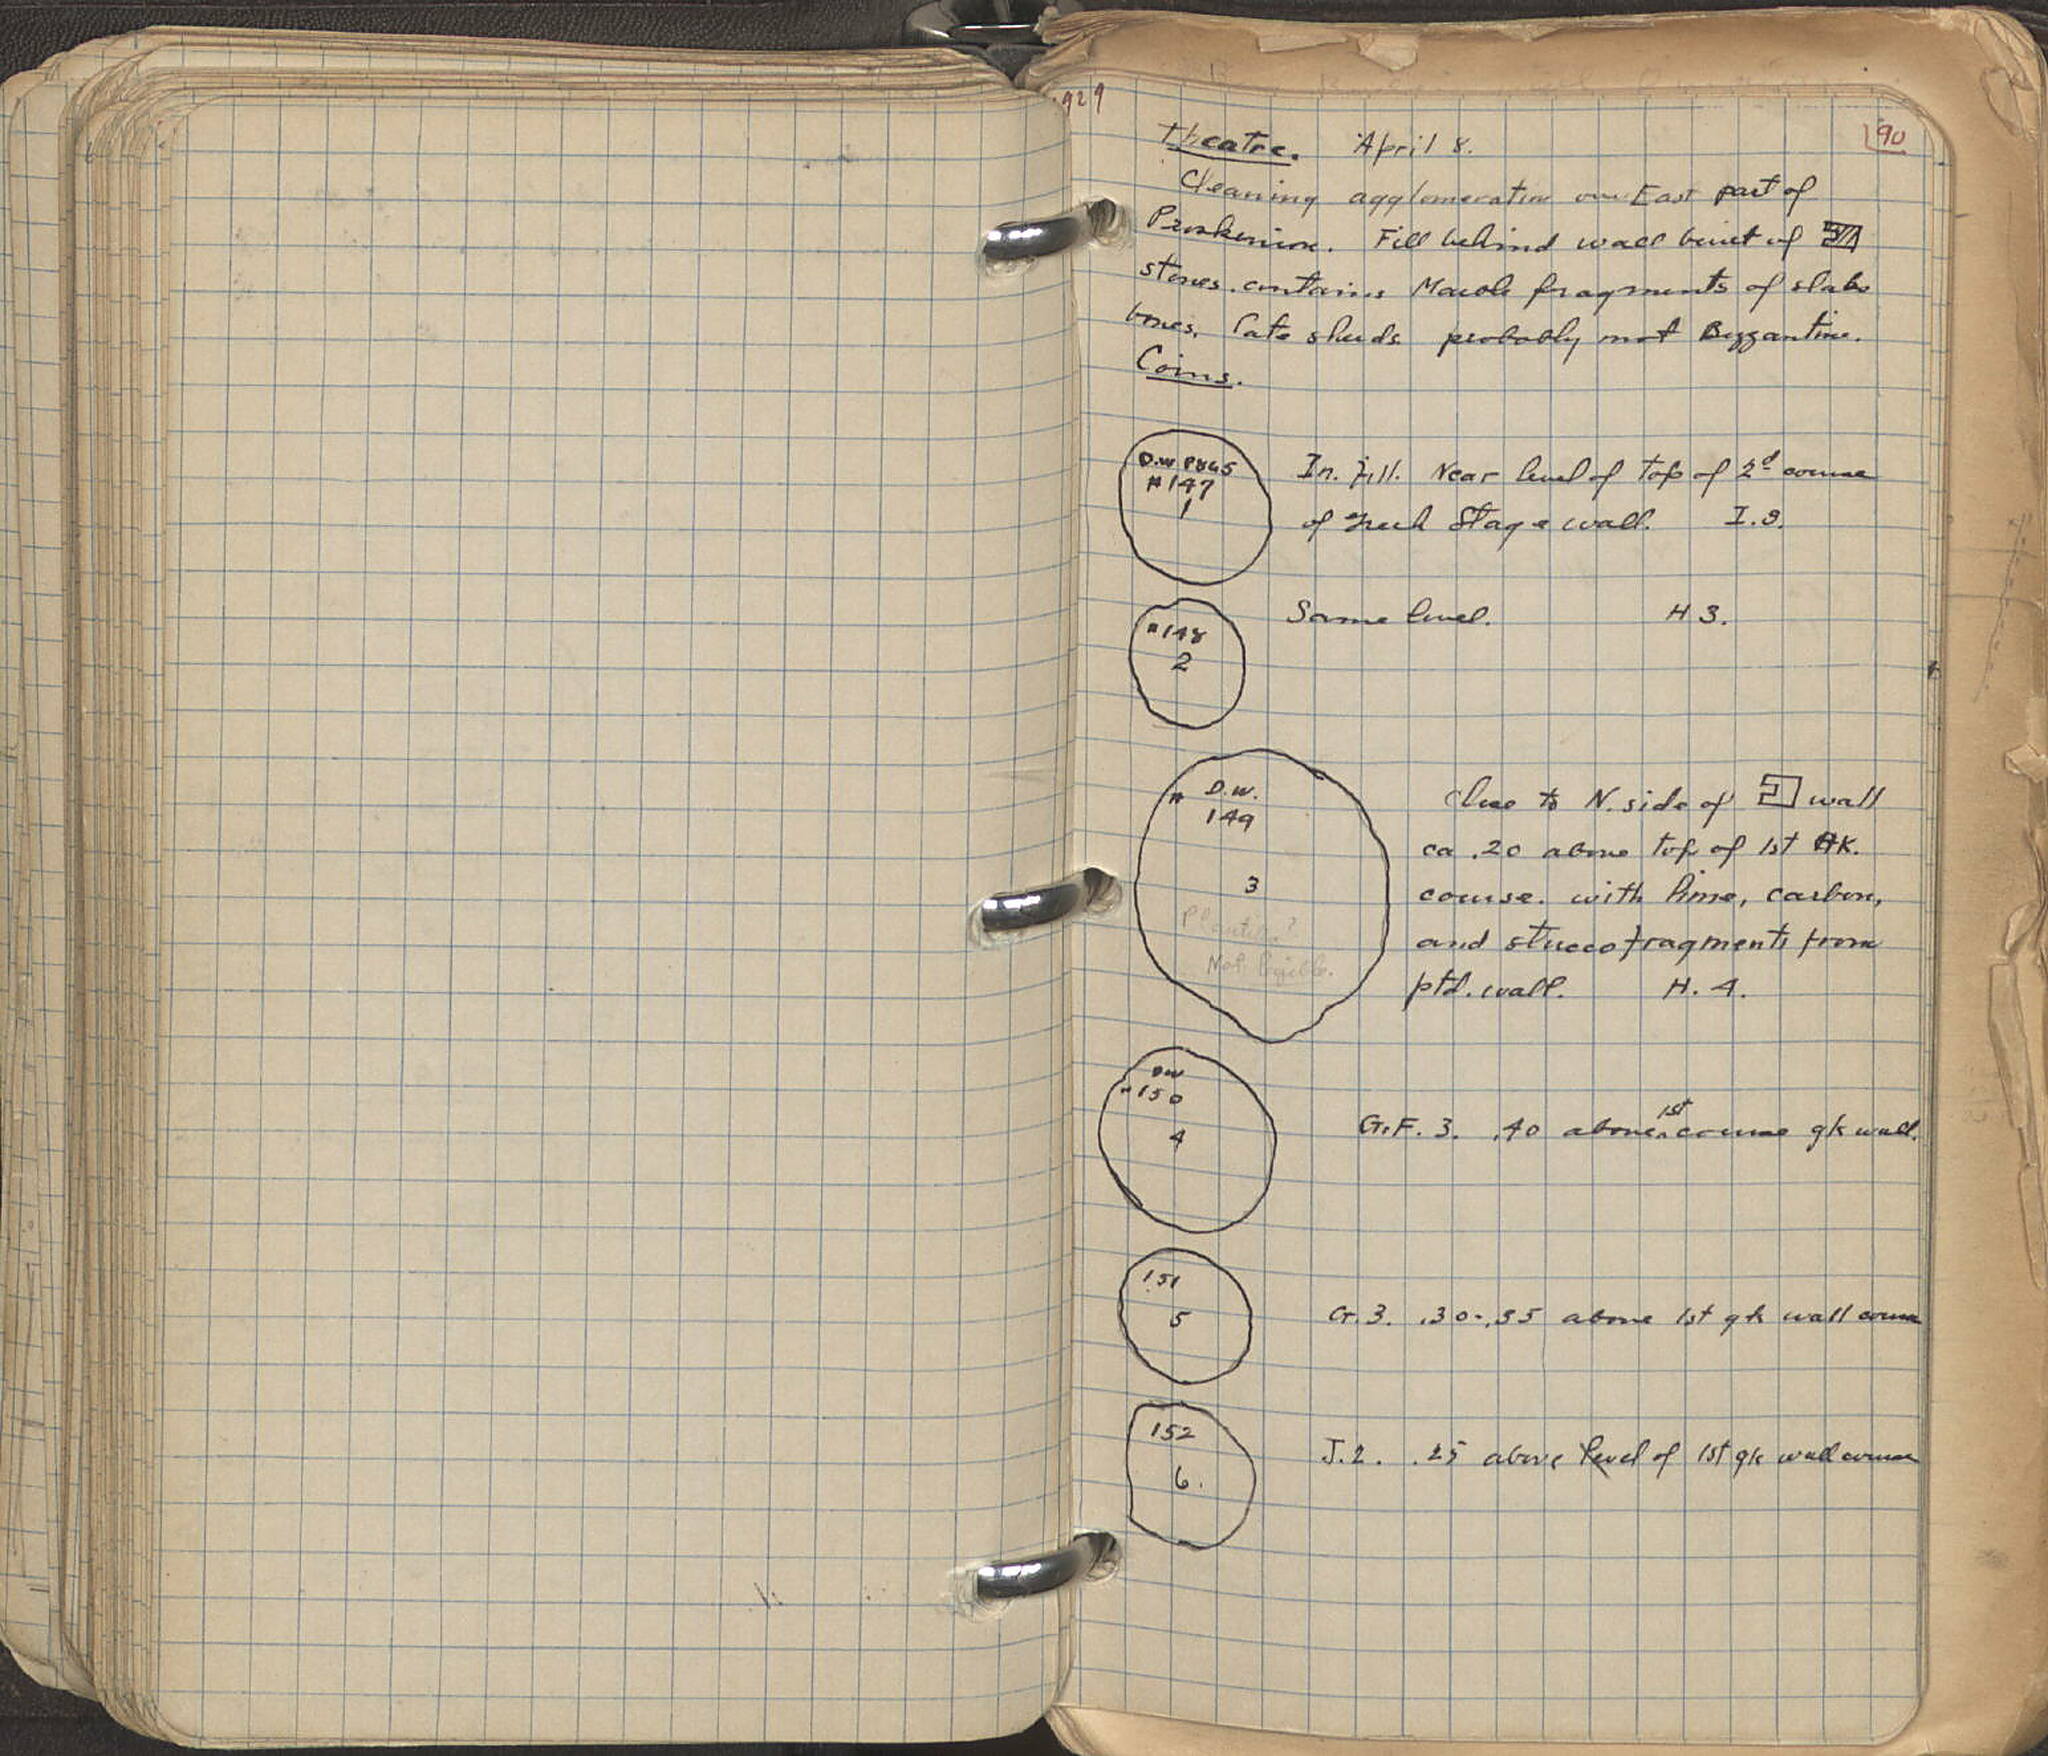 1929
90
Theatre. April 8.
Cleaning agglomeration over East part of
Proskenion. Fill behind wall built of
stones. contains Marble fragments of slabs
bones, late sherds probably not Byzantine.
Coins.
D.W
#147
1
In. fill. Near level of top of 2d course
of Greek Stage wall. I.3.
#148
2
Same level. H 3.
# D.W.
149
3
Not legible.
Close to N. side of wall
ca .20 above top of 1st gk.
course. with lime, carbon,
and stucco fragments from
ptd. wall. H. 4.
DW
#150
4
G.F. 3. .40 above 1st course gk wall.
151
5
G.3. .30-.35 above 1st gk wall course
152
6.
J.2. .25 above level of 1st gk wall course